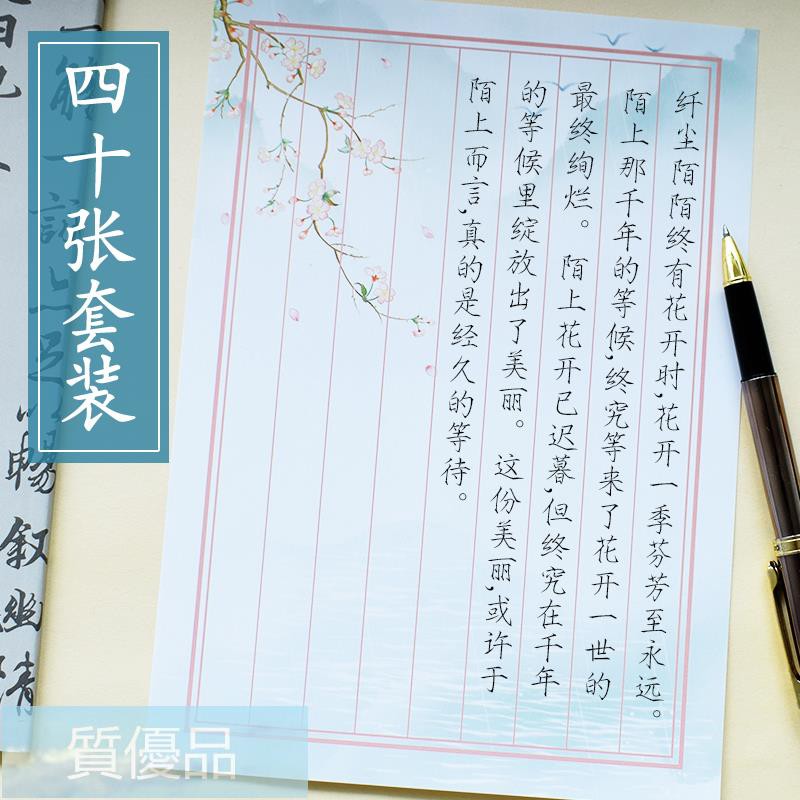 四十张套装
纤尘陌陌终有花开时,花开一季芬芳至永远。
陌上那千年的等候,终究等来了花开一世的
最终绚烂。陌上花开已迟暮,但终究在千年
的等候里绽放出了美丽。这份美丽,或许于
陌上而言,真的是经久的等待。
暢叙幽情
質優品